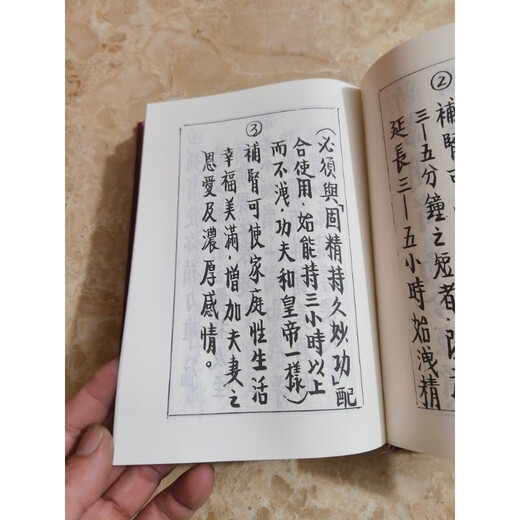 ②
補腎可
三—五分鐘之短者.
延長三—五小時始洩精
(必須與「固精持久妙功」配
合使用.始能持三小時以上
而不洩.功夫和皇帝一樣)
③
補腎可使家庭性生活
幸福美滿.增加夫妻之
恩愛及濃厚感情。